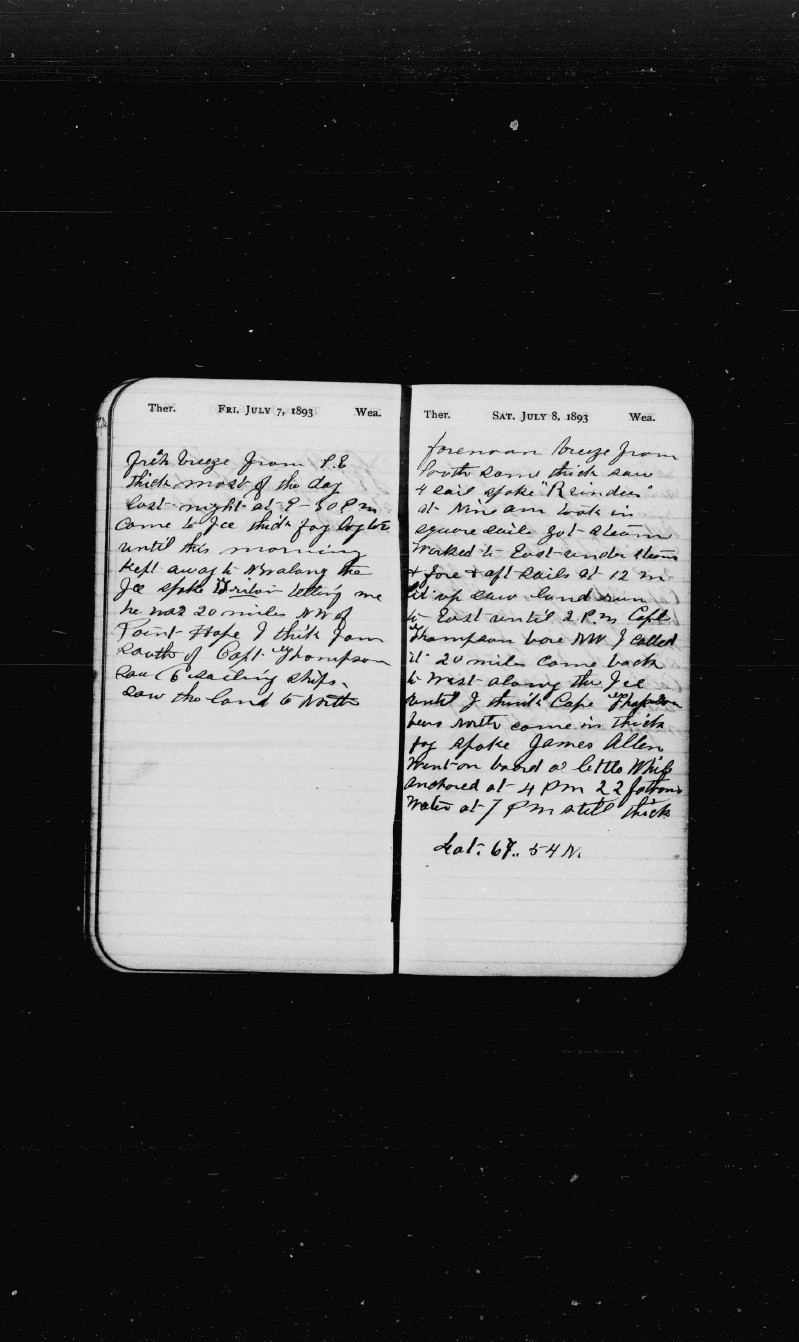 Ther. FRI. JULY 7, 1893 Wea.
fresh breeze from S.E
thick most of the day
last night at 9-30 Pm
come to Ice thick fog lay
until this morning
Kept away to along the
Ice spoke telling me
he was 20 miles NW of
Point Hope I think I am
South of Capt Thompson
saw 6 sailing ships.
saw the land to North
Ther. SAT. JULY 8, 1893 Wea.
forenoon breeze from
South some thick saw
4 sail spoke "Reindeer"
at Nine am took in
square sails got steam
worked to East under steam
& fore & aft sails at 12 m
lit up saw land run
to East until 2 P.m Capt
Thompson bore NW I called
it 20 miles come back
to West along the Ice
until I think Cape Thompson
bears North come in thick
fog spoke James Allen
went on board a little while
anchored at 4 Pm 22 fathoms
water at 7 Pm still thick
Lat. 67.. 54 N.